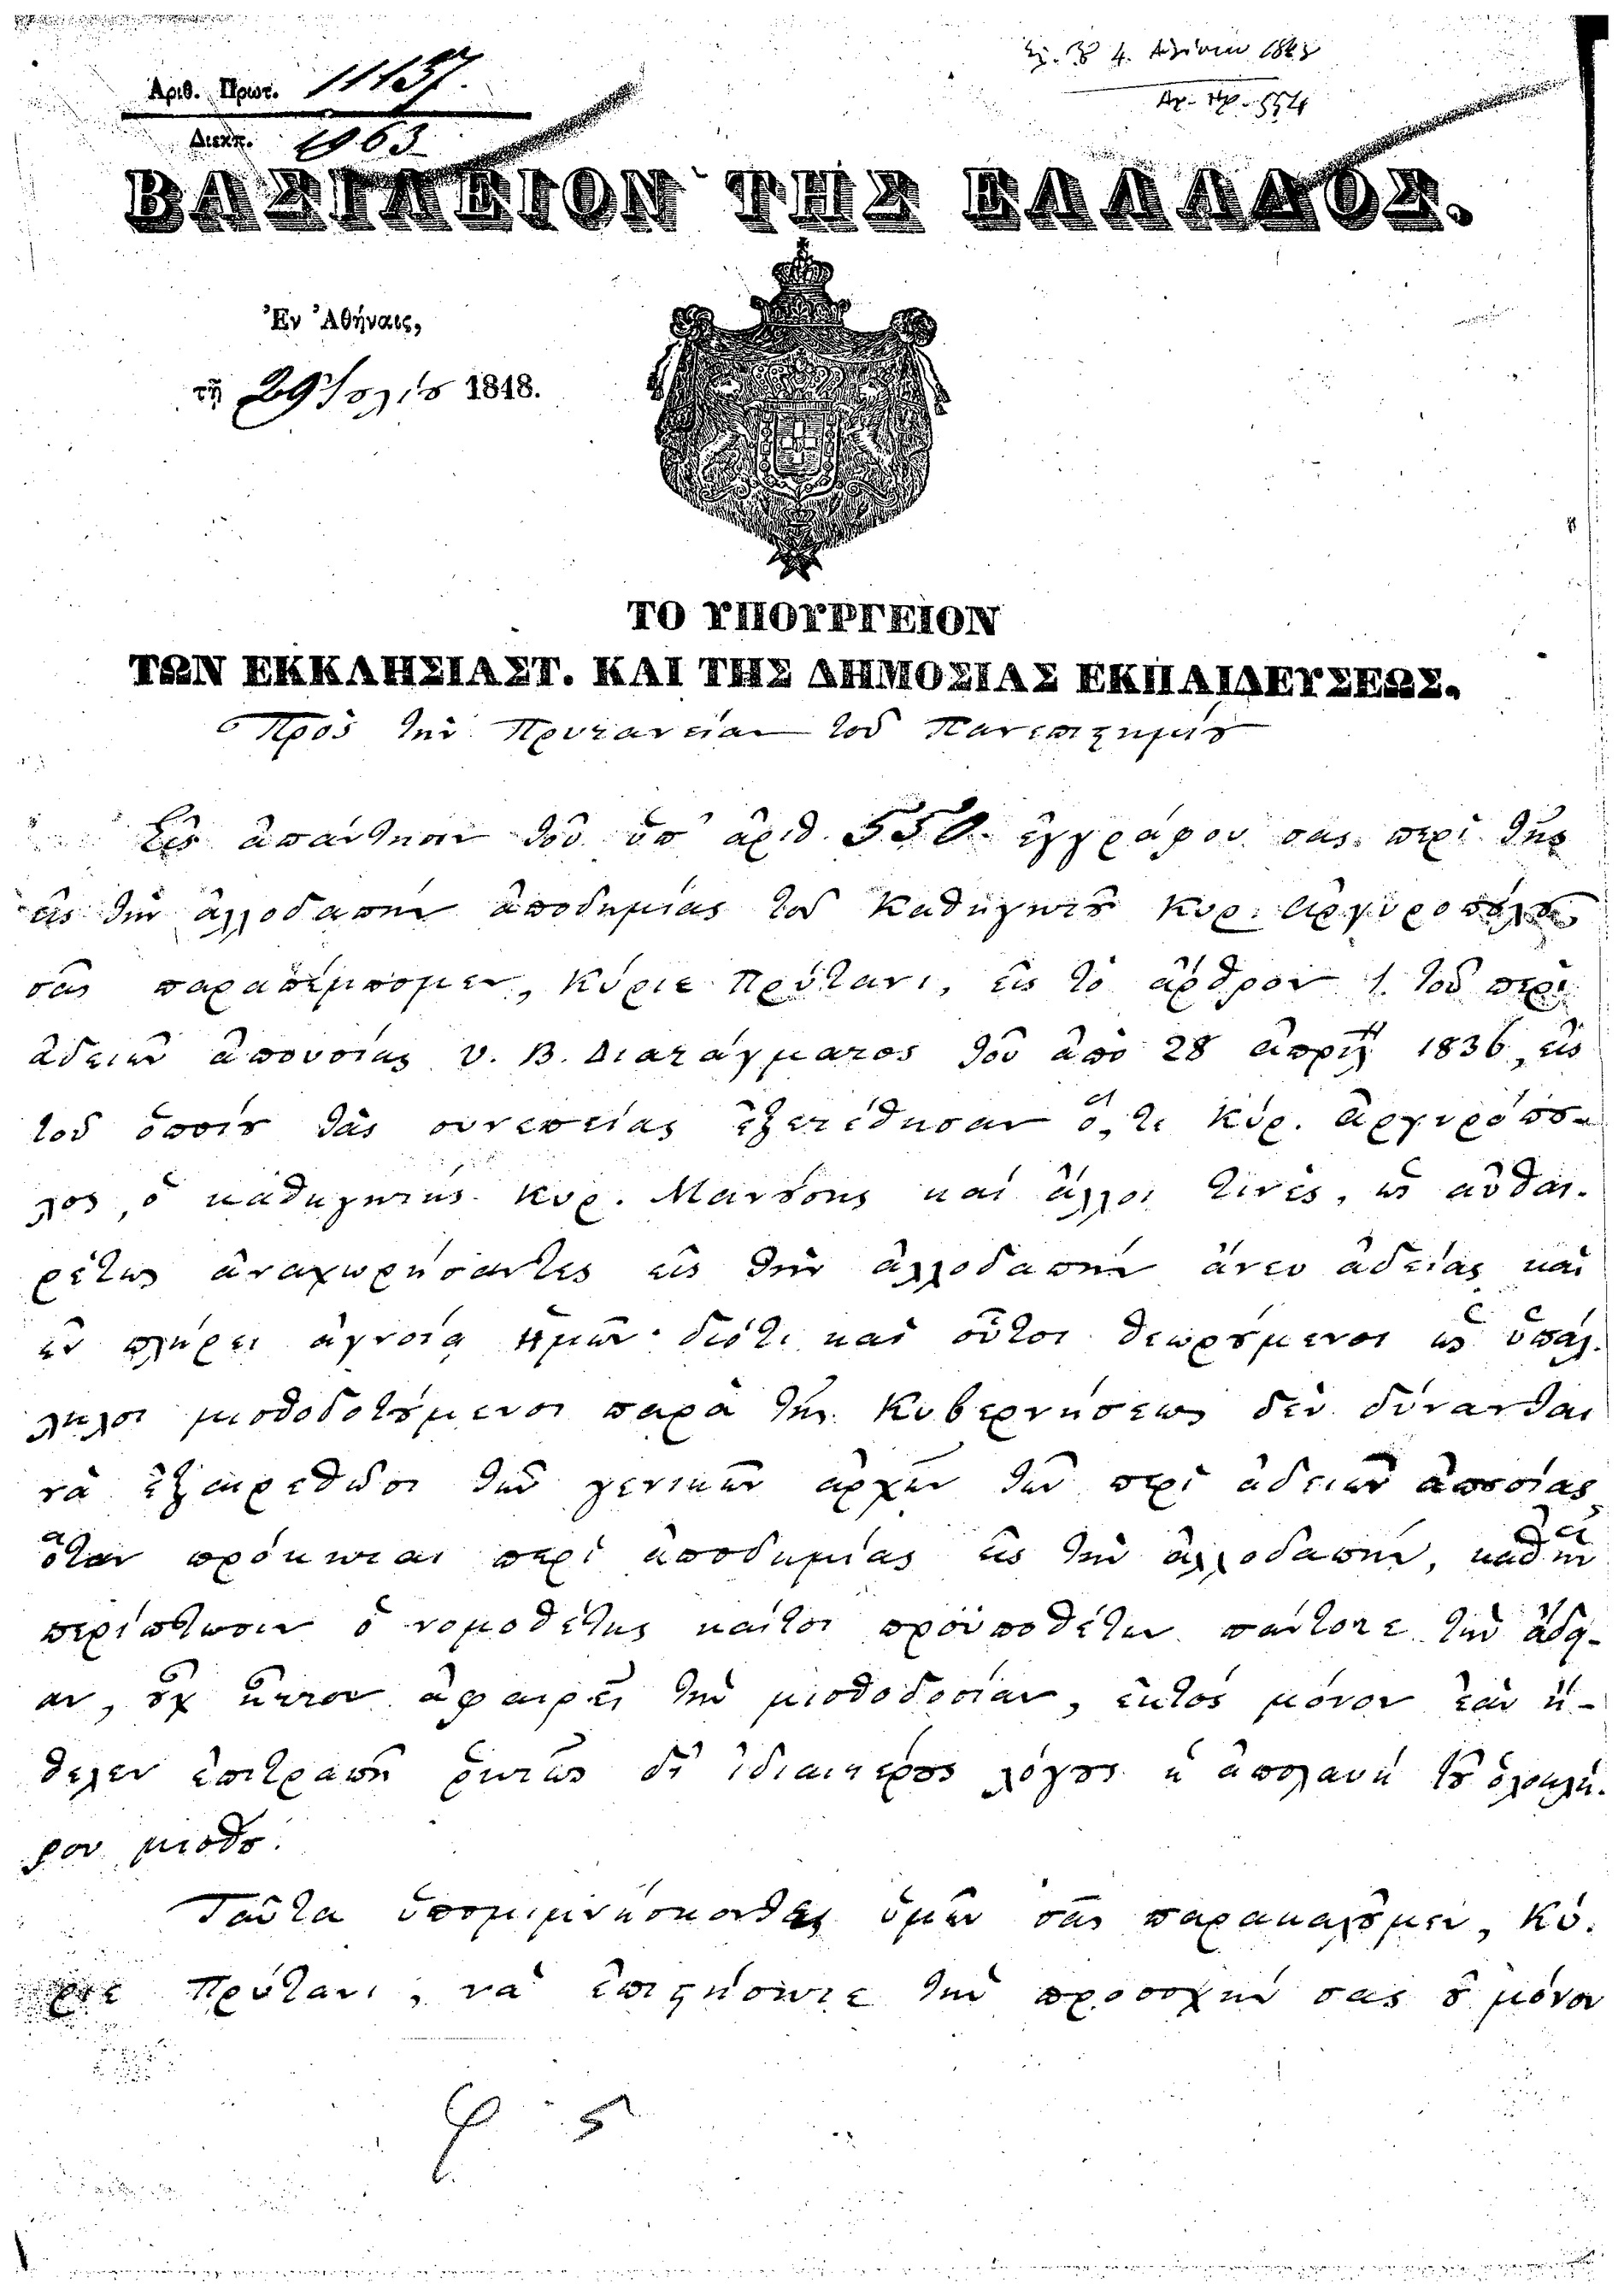 Αριθ. Πρωτ. 11137.
Διεκπ. 1963
ΒΑΣΙΛΕΙΟΝ ΤΗΣ ΕΛΛΑΔΟΣ.
Ἐν Ἀθήναις,
τῇ 29 Ἰουλίου 1848.
ΤΟ ΥΠΟΥΡΓΕΙΟΝ
ΤΩΝ ΕΚΚΛΗΣΙΑΣΤ. ΚΑΙ ΤΗΣ ΔΗΜΟΣΙΑΣ ΕΚΠΑΙΔΕΥΣΕΩΣ.
Πρὸς τὴν Πρυτανείαν τοῦ Πανεπιστημίου
Εἰς ἀπάντησιν τοῦ ὑπ' ἀριθ. 550. ἐγγράφου σας περὶ τῆς
εἰς τὴν ἀλλοδαπὴν ἀποδημίας τοῦ καθηγητοῦ Κυρ. Ἀργυροπούλου
σᾶς παραπέμπομεν, Κύριε Πρύτανι, εἰς τὸ ἄρθρον 1. τοῦ περὶ
ἀδειῶν ἀπουσίας υ. Β. Διατάγματος τοῦ ἀπὸ 28 ἀπριλ 1836, εἰς
τοῦ ὁποίου τὰς συνεπείας ἐξετέθησαν ὅ, τε Κύρ. Ἀργυρόπου-
λος, ὁ καθηγητὴς Κυρ. Μανούσης καὶ ἄλλοι τινὲς, ὡς αὐθαι-
ρέτως ἀναχωρήσαντες εἰς τὴν ἀλλοδαπὴν ἄνευ ἀδείας καὶ
ἐν πλήρει ἀγνοίᾳ ἡμῶν· διότι καὶ οὗτοι θεωρούμενοι ὡς ὑπάλ-
ληλοι μισθοδοτούμενοι παρὰ τῆς Κυβερνήσεως δὲν δύνανται
νὰ ἐξαιρεθῶσι τῶν γενικῶν ἀρχῶν τῶν περὶ ἀδειῶν ἀπουσίας,
ὅταν πρόκηται περὶ ἀποδημίας εἰς τὴν ἀλλοδαπήν, καθ' ἣν
περίπτωσιν ὁ νομοθέτης καίτοι προϋποθέτων πάντοτε τὴν ἄδει-
αν, οὐχ ἧττον ἀφαιρεῖ τὴν μισθοδοσίαν, ἐκτὸς μόνον ἐὰν ἤ-
θελεν ἐπιτραπῆ ῥητῶς δι' ἰδιαιτέρους λόγους ἡ ἀπολαυὴ τοῦ ὁλοκλή-
ρου μισθοῦ.
Ταῦτα ὑπομιμνήσκοντες ὑμῖν σᾶς παρακαλοῦμεν, Κύ-
ριε Πρύτανι, νὰ ἐπιστήσητε τὴν προσοχήν σας οὐ μόνον